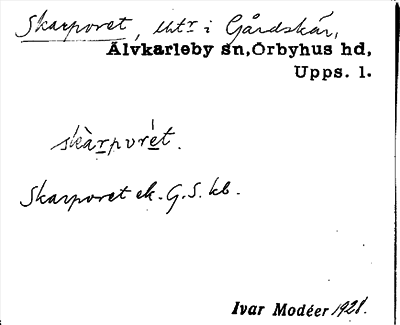 Skarporet, utr i Gårdskär,
Älvkarleby sn, Örbyhus hd,
Upps. l.
skàrpọrét.
Skarporet ek. G.S. kb.
Ivar Modéer 1928.